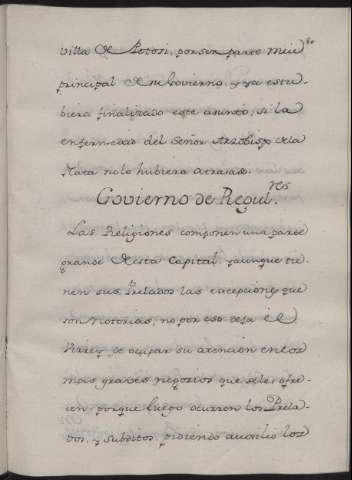 villa de Potosi, por ser parte mui
principal de su Govierno, y ya estu-
biera finalizado este asunto, si la
enfermedad del Señor Arzobispo de la
Plata no lo hubiera atrasado.
Govierno de Regul.res
Las Religiones componen una parte
grande de esta Capital, y aunque tie-
nen sus Prelados las excepciones que
son notorias, no por eso deja el
Virrey de ocupar su atencion en los
mas graves negozios que se les ofre-
cen, porque luego ocurren los Prela-
dos, y subditos, pidiendo auxilio los